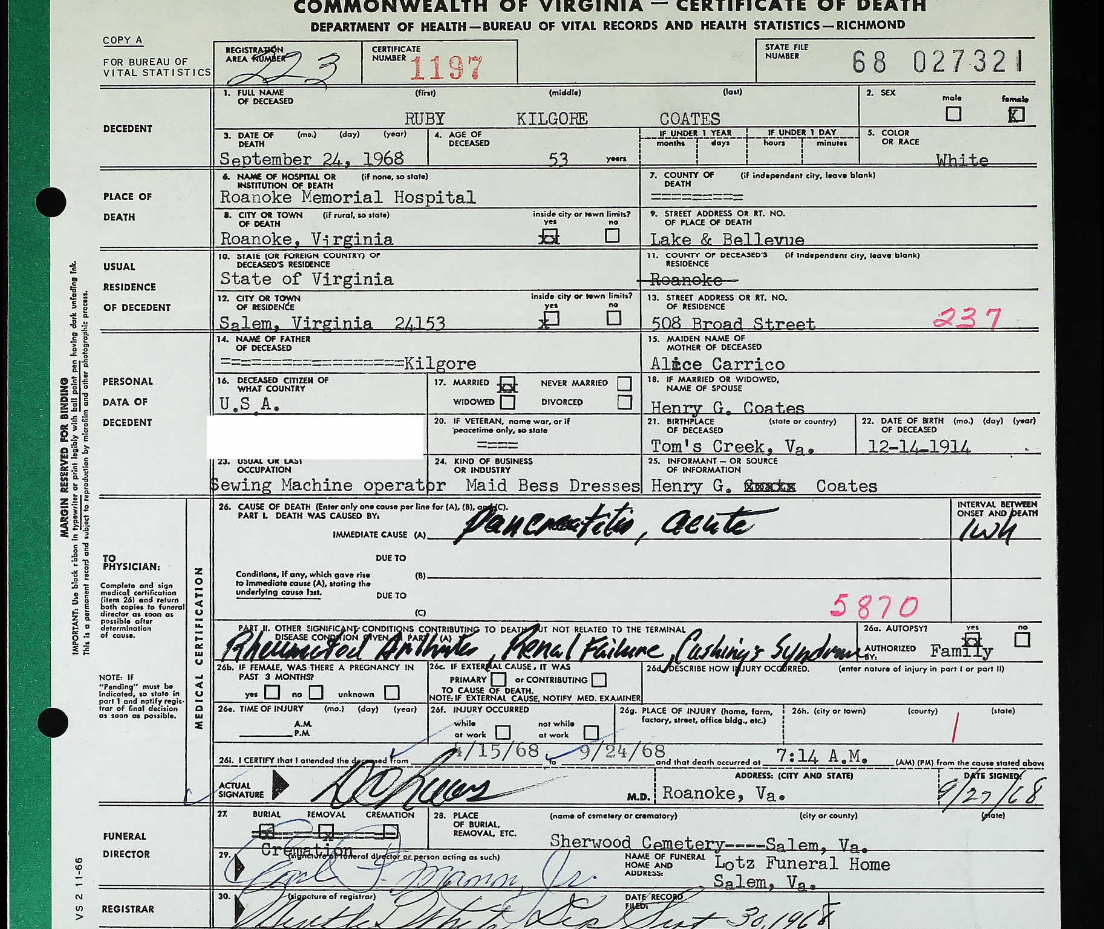 COMMONWEALTH OF VIRGINIA — CERTIFICATE OF DEATH
DEPARTMENT OF HEALTH—BUREAU OF VITAL RECORDS AND HEALTH STATISTICS—RICHMOND
COPY A
FOR BUREAU OF VITAL STATISTICS
REGISTRATION AREA NUMBER 223
CERTIFICATE NUMBER 1197
STATE FILE NUMBER 68 027321
DECEDENT
1. FULL NAME OF DECEASED (first) (middle) (last)
RUBY KILGORE COATES
2. SEX male female X
3. DATE OF DEATH (mo.) (day) (year)
September 24, 1968
4. AGE OF DECEASED
53 years
IF UNDER 1 YEAR months days
IF UNDER 1 DAY hours minutes
5. COLOR OR RACE
White
PLACE OF DEATH
6. NAME OF HOSPITAL OR INSTITUTION OF DEATH (if none, so state)
Roanoke Memorial Hospital
7. COUNTY OF DEATH (if independent city, leave blank)
=========
8. CITY OR TOWN OF DEATH (if rural, so state) inside city or town limits? yes no
Roanoke, Virginia
9. STREET ADDRESS OR RT. NO. OF PLACE OF DEATH
Lake & Bellevue
USUAL RESIDENCE OF DECEDENT
10. STATE (OR FOREIGN COUNTRY) OF DECEASED'S RESIDENCE
State of Virginia
11. COUNTY OF DECEASED'S RESIDENCE (if independent city, leave blank)
Roanoke
12. CITY OR TOWN OF RESIDENCE inside city or town limits? yes no
Salem, Virginia 24153
13. STREET ADDRESS OR RT. NO. OF RESIDENCE
508 Broad Street 237
PERSONAL DATA OF DECEDENT
14. NAME OF FATHER OF DECEASED
==================Kilgore
15. MAIDEN NAME OF MOTHER OF DECEASED
Alice Carrico
16. DECEASED CITIZEN OF WHAT COUNTRY
U.S.A.
17. MARRIED NEVER MARRIED
WIDOWED DIVORCED
18. IF MARRIED OR WIDOWED, NAME OF SPOUSE
Henry G. Coates
20. IF VETERAN, name war, or if peacetime only, so state
====
21. BIRTHPLACE OF DECEASED (state or country)
Tom's Creek, Va.
22. DATE OF BIRTH OF DECEASED (mo.) (day) (year)
12-14-1914
23. USUAL OR LAST OCCUPATION
Sewing Machine operator
24. KIND OF BUSINESS OR INDUSTRY
Maid Bess Dresses
25. INFORMANT — OR SOURCE OF INFORMATION
Henry G. Coates
TO PHYSICIAN:
Complete and sign medical certification (item 26) and return both copies to funeral director as soon as possible after determination of cause.
NOTE: If "Pending" must be indicated, so state in part 1 and notify registrar of final decision as soon as possible.
MEDICAL CERTIFICATION
26. CAUSE OF DEATH (Enter only one cause per line for (A), (B), and (C).
PART I. DEATH WAS CAUSED BY:
IMMEDIATE CAUSE (A) Pancreatitis, acute
INTERVAL BETWEEN ONSET AND DEATH
1wk
DUE TO
Conditions, if any, which gave rise to immediate cause (A), stating the underlying cause last.
(B)
DUE TO
(C)
5870
PART II. OTHER SIGNIFICANT CONDITIONS CONTRIBUTING TO DEATH BUT NOT RELATED TO THE TERMINAL DISEASE CONDITION GIVEN IN PART I (A)
Rheumatoid Arthritis, Renal Failure, Cushing's Syndrome
26a. AUTOPSY? yes no
AUTHORIZED BY: Family
26b. IF FEMALE, WAS THERE A PREGNANCY IN PAST 3 MONTHS?
yes no unknown
26c. IF EXTERNAL CAUSE, IT WAS
PRIMARY or CONTRIBUTING
TO CAUSE OF DEATH.
NOTE: IF EXTERNAL CAUSE, NOTIFY MED. EXAMINER
26d. DESCRIBE HOW INJURY OCCURRED. (enter nature of injury in part I or part II)
26e. TIME OF INJURY (mo.) (day) (year)
A.M.
P.M.
26f. INJURY OCCURRED
while at work not while at work
26g. PLACE OF INJURY (home, farm, factory, street, office bldg., etc.)
26h. (city or town) (county) (state)
26i. I CERTIFY that I attended the deceased from /15/68 to 9/24/68 and that death occurred at 7:14 A.M. (AM) (PM) from the cause stated above
ACTUAL SIGNATURE M.D.
ADDRESS: (CITY AND STATE)
Roanoke, Va.
DATE SIGNED:
9/27/68
FUNERAL DIRECTOR
27. BURIAL REMOVAL CREMATION
Cremation
28. PLACE OF BURIAL, REMOVAL, ETC. (name of cemetery or crematory) (city or county) (state)
Sherwood Cemetery----Salem, Va.
29. (signature of funeral director or person acting as such)
NAME OF FUNERAL HOME AND ADDRESS:
Lotz Funeral Home
Salem, Va.
REGISTRAR
30. (signature of registrar)
DATE RECORD FILED: Sept 30, 1968
VS 2 11-66
MARGIN RESERVED FOR BINDING
IMPORTANT: Use black ribbon in typewriter or print legibly with ball point pen having dark unfading ink.
This is a permanent record and subject to reproduction by microfilm and other photographic process.